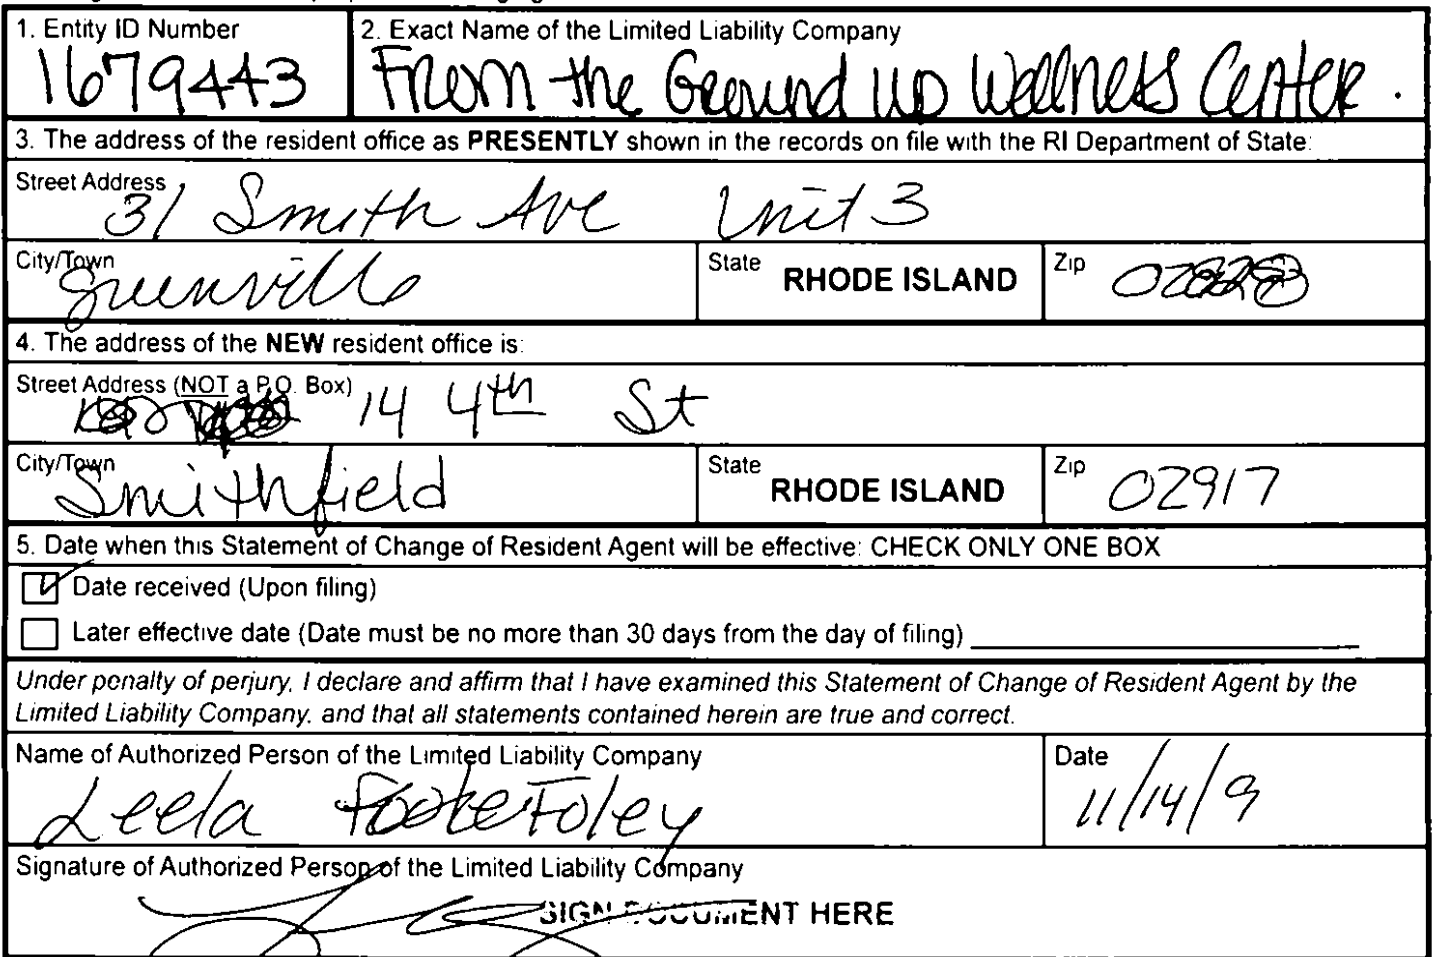 1. Entity ID Number
1679443
2. Exact Name of the Limited Liability Company
From the Ground Up Wellness Center.
3. The address of the resident office as PRESENTLY shown in the records on file with the RI Department of State:
Street Address
31 Smith Ave Unit 3
City/Town
Greenville
State RHODE ISLAND
Zip 02828
4. The address of the NEW resident office is:
Street Address (NOT a P.O. Box)
14 4th St
City/Town
Smithfield
State RHODE ISLAND
Zip 02917
5. Date when this Statement of Change of Resident Agent will be effective: CHECK ONLY ONE BOX
Date received (Upon filing)
Later effective date (Date must be no more than 30 days from the day of filing)
Under penalty of perjury, I declare and affirm that I have examined this Statement of Change of Resident Agent by the
Limited Liability Company, and that all statements contained herein are true and correct.
Name of Authorized Person of the Limited Liability Company
Leela Foley
Date
11/14/9
Signature of Authorized Person of the Limited Liability Company
SIGN DOCUMENT HERE